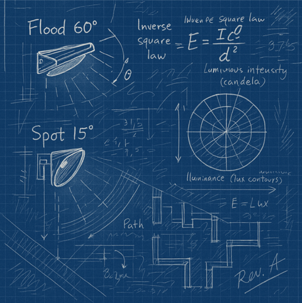 Flood 60°
Inverse
square
law
Inverse square law
= E =
d²
θ
Luminous intensity
(candela)
Spot 15°
Illuminance (lux contours)
= E = Lux
Path
Rev. A